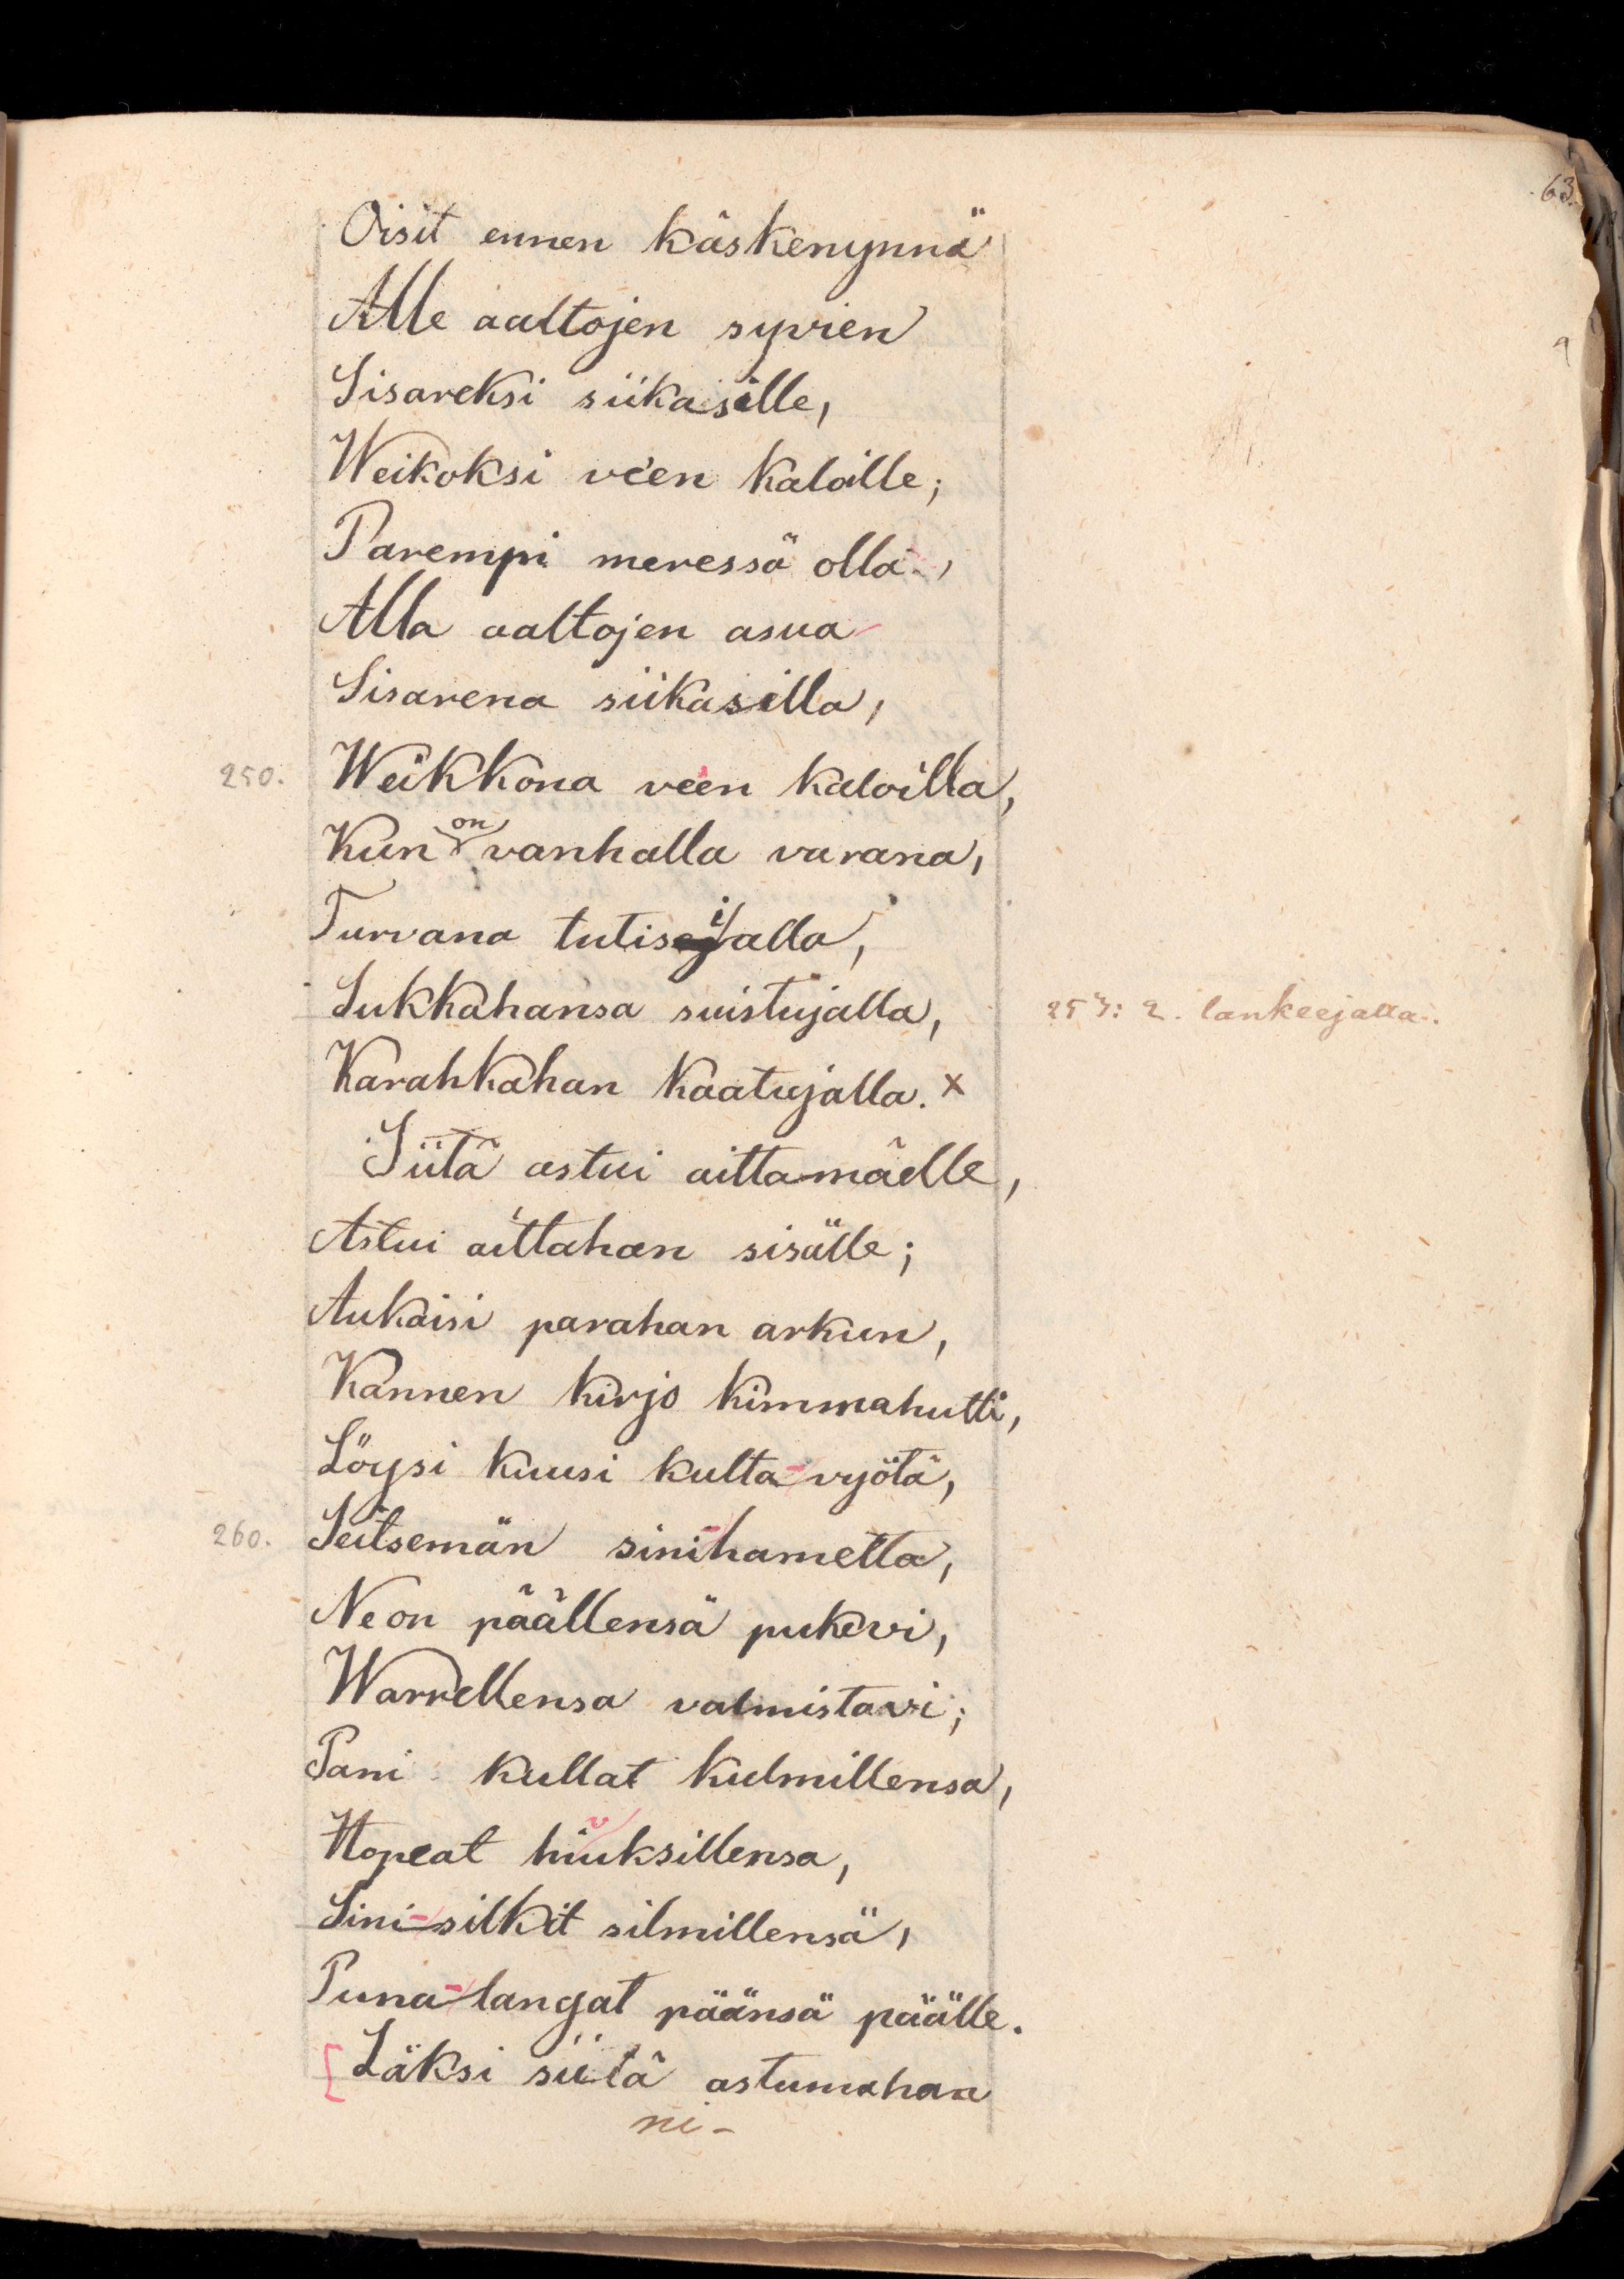 63.
Oisit ennen käskenynnä
Alle aaltojen syvien
Sisareksi siikasille,
Weikoksi ve'en kaloille;
Parempi meressä olla,
Alla aaltojen asua
Sisarena siikasilla,
250. Weikkona veen kaloilla,
Kun on vanhalla varana,
Turvana tutisijalla,
Sukkahansa suistujalla, 253: 2. lankeejalla.
Karahkahan kaatujalla. x
Siitä astui aittamäelle,
Astui aittahan sisälle;
Aukaisi parahan arkun,
Kannen kirjo kimmahutti,
Löysi kuusi kulta-vyötä,
260. Seitsemän sini-hametta,
Ne on päällensä pukevi,
Warrellensa valmistavi;
Pani kullat kulmillensa,
Hopeat hiuksillensa,
Sini-silkit silmillensä,
Puna-langat päänsä päälle.
[Läksi siitä astumahan
ni-